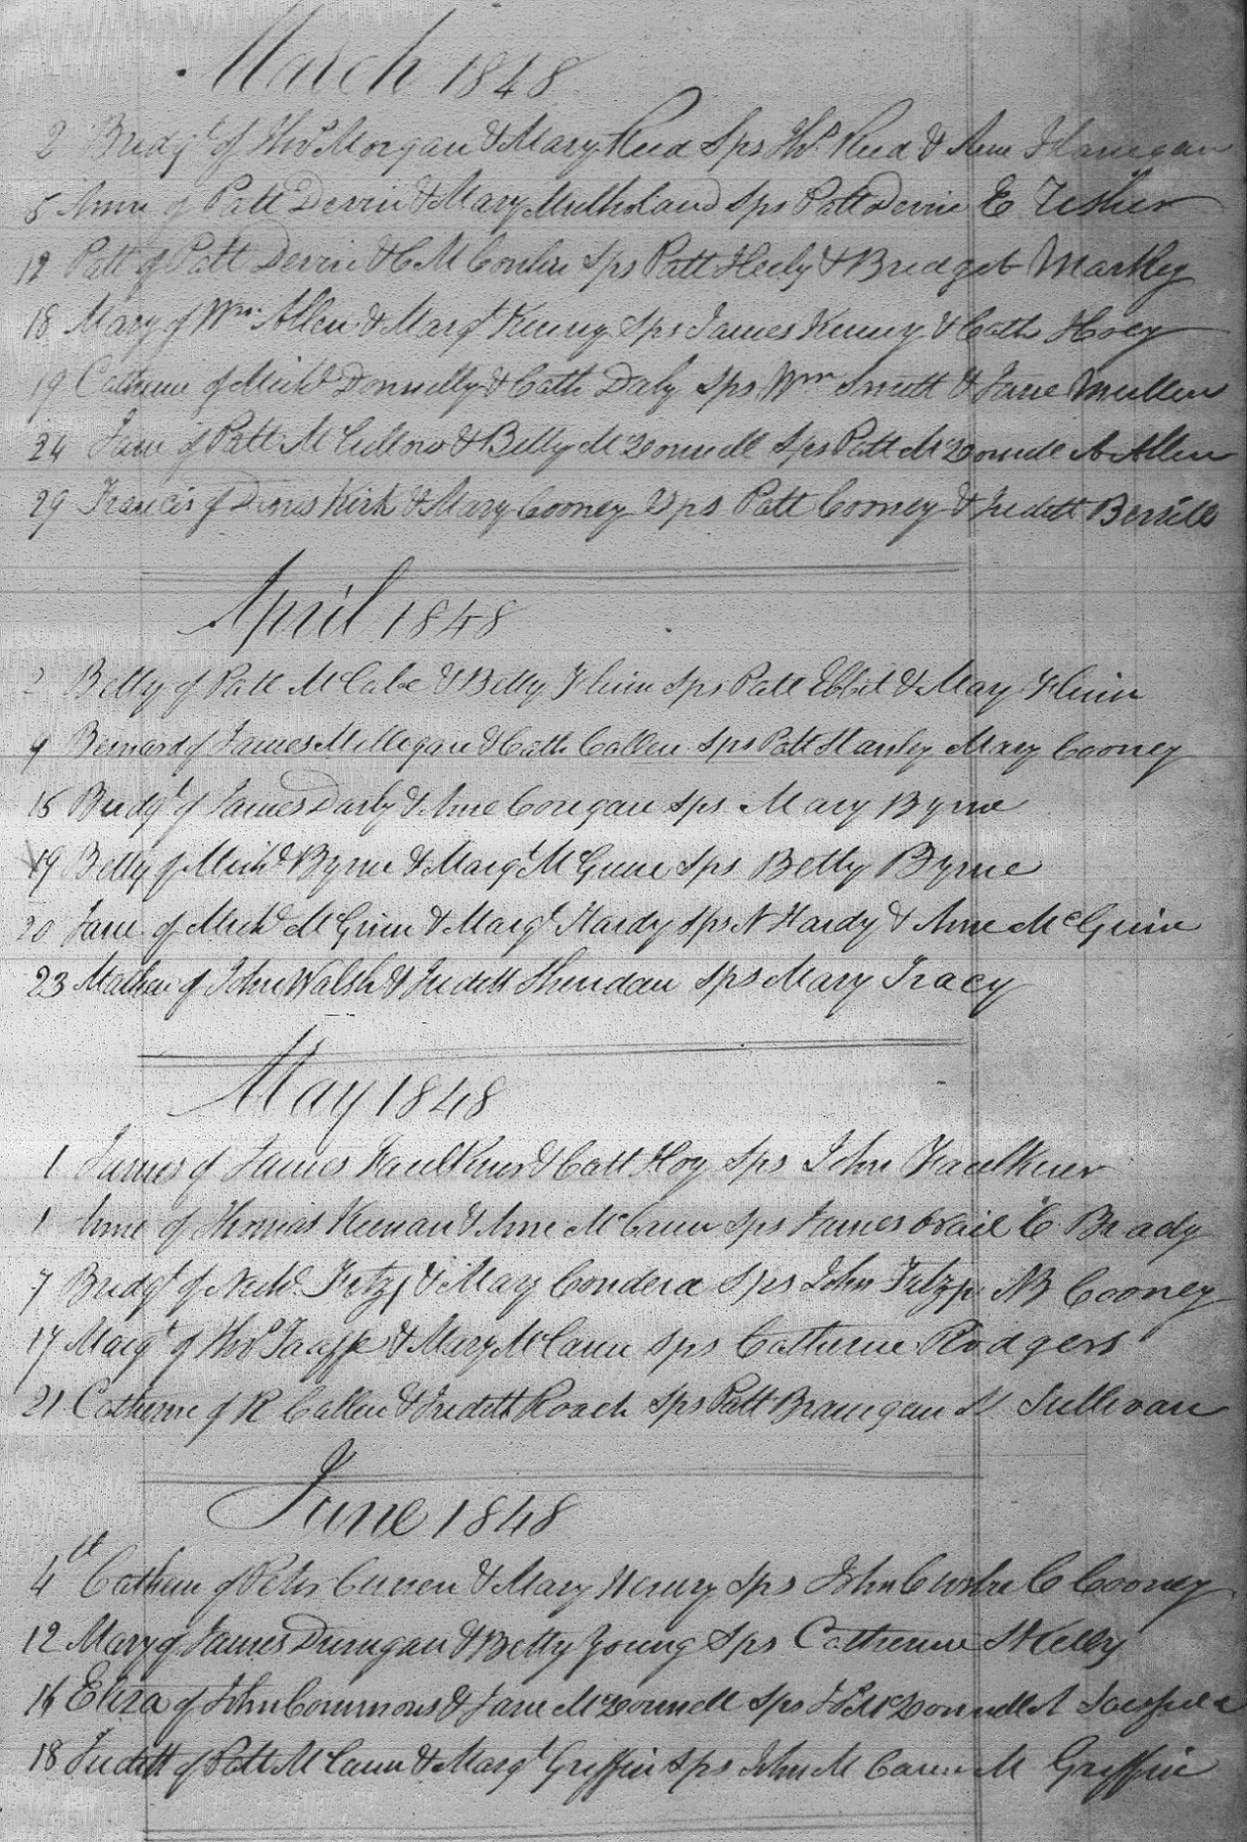 March 1848
2 Bridgt of Thos Morgan & Mary Reed Sps Thos Reed & Anne Flanegan
5 Anne of Patt Devin & Mary Mulholand Sps Patt Devin E Usher
12 Patt of Patt Devin & C McConkre Sps Patt Heely & Bridget Markey
18 Mary of Wm Allen & Margt Kenny Sps James Kenny & Cath Hoey
19 Catherine of Michl Donnelly & Cath Daly Sps Wm Smith & Jane Mullen
24 Jane of Patt McCullow & Betty McDonnell Sps Patt McDonnell A Allen
29 Francis of Dinis Kirk & Mary Cooney Sps Patt Cooney & Judett Berrill
April 1848
2 Betty of Patt McCabe & Betty Flinn Sps Patt Ebbit & May Flinn
9 Bernard of James Milligan & Cath Callen Sps Patt Hanley Mary Cooney
15 Bridgt of James Darby & Anne Conegan Sps Mary Byrne
19 Betty of Michl Byrne & Margt McGuire Sps Betty Byrne
20 Jane of Michl McGuire & Margt Hardy Sps N Hardy & Anne McGuire
23 Mathew of John Walsh & Judett Sheridan Sps Mary Tracy
May 1848
1 James of James Faulkner & Catt Hoy Sps John Faulkner
1 Anne of Thomas Keenan & Anne McCann Sps James C Brady
7 Bridgt of Michl Fitzp & Mary Condera Sps John Fitzp B Cooney
17 Margt of Thos Taaffe & Mary McCann Sps Catherine Rodgers
21 Catherine of R Callen & Judett Roach Sps Patt Branegan Sullivan
June 1848
4th Cathern of Peter Curren & Mary Henry Sps John C Cooney
12 Mary of James Dunegan & Betty Young Sps Catherine Kelly
16 Eliza of John Commons & Jane McDonnell Sps McDonnell
18 Judett of Patt McCann & Margt Griffin Sps John McCann M Griffin